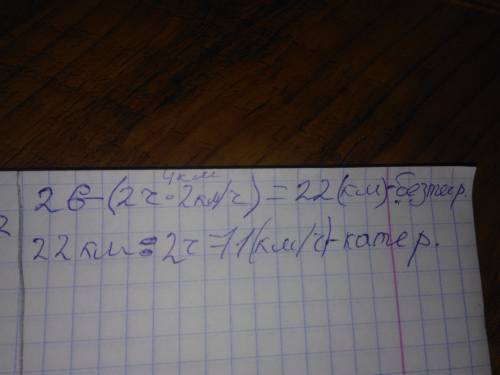 4км
26-(2ч·2км/ч)=22(км)-без теч.
22км:2ч=11(км/ч)-катер.
2